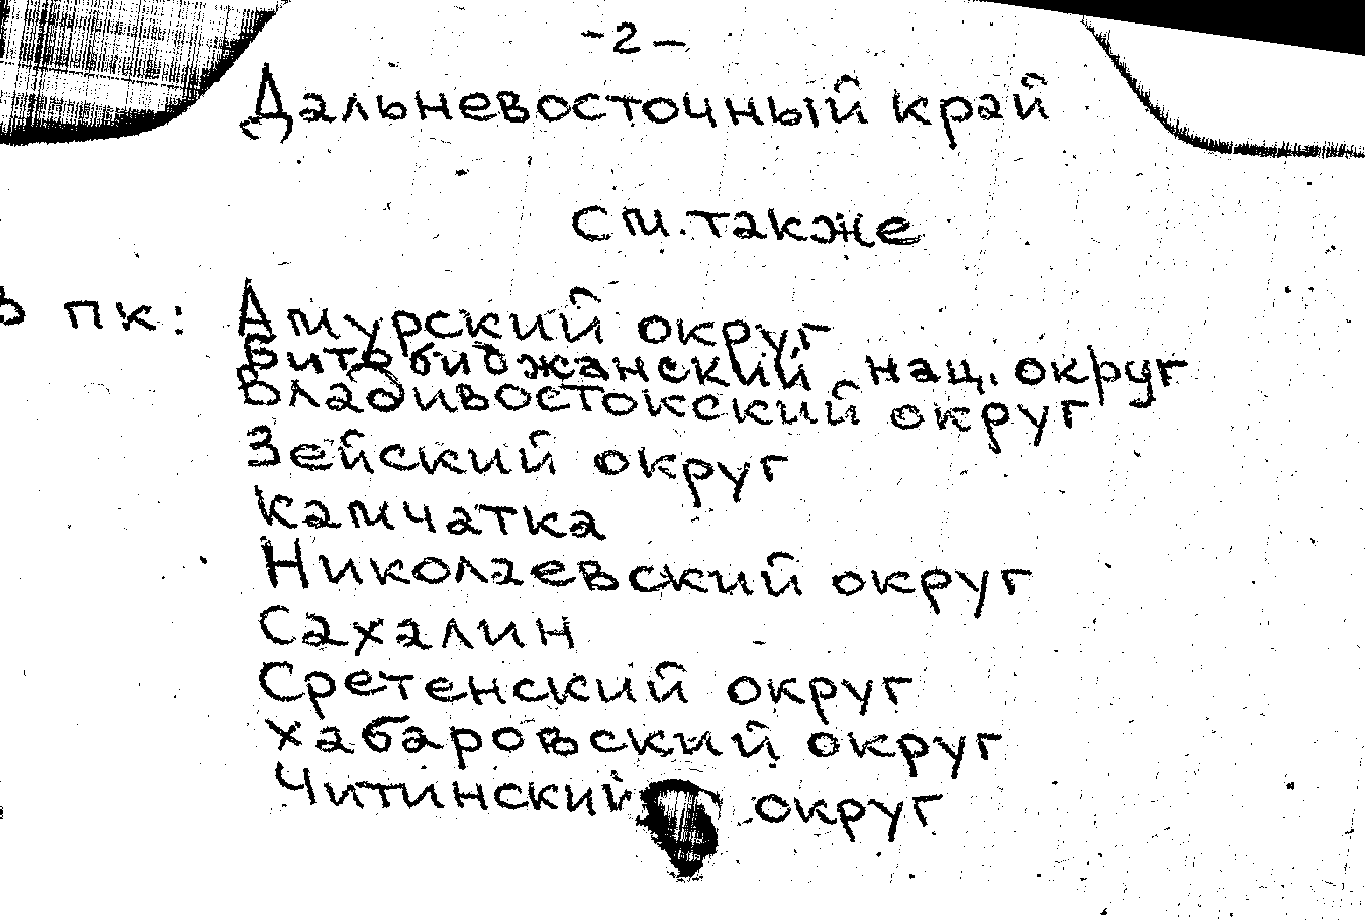 -2-
Дальневосточный край
см. также
в ПК: Амурский округ
Биробиджанский нац. округ
Владивостокский округ
Зейский округ
Камчатка
Николаевский округ
Сахалин
Сретенский округ
Хабаровский округ
Читинский округ